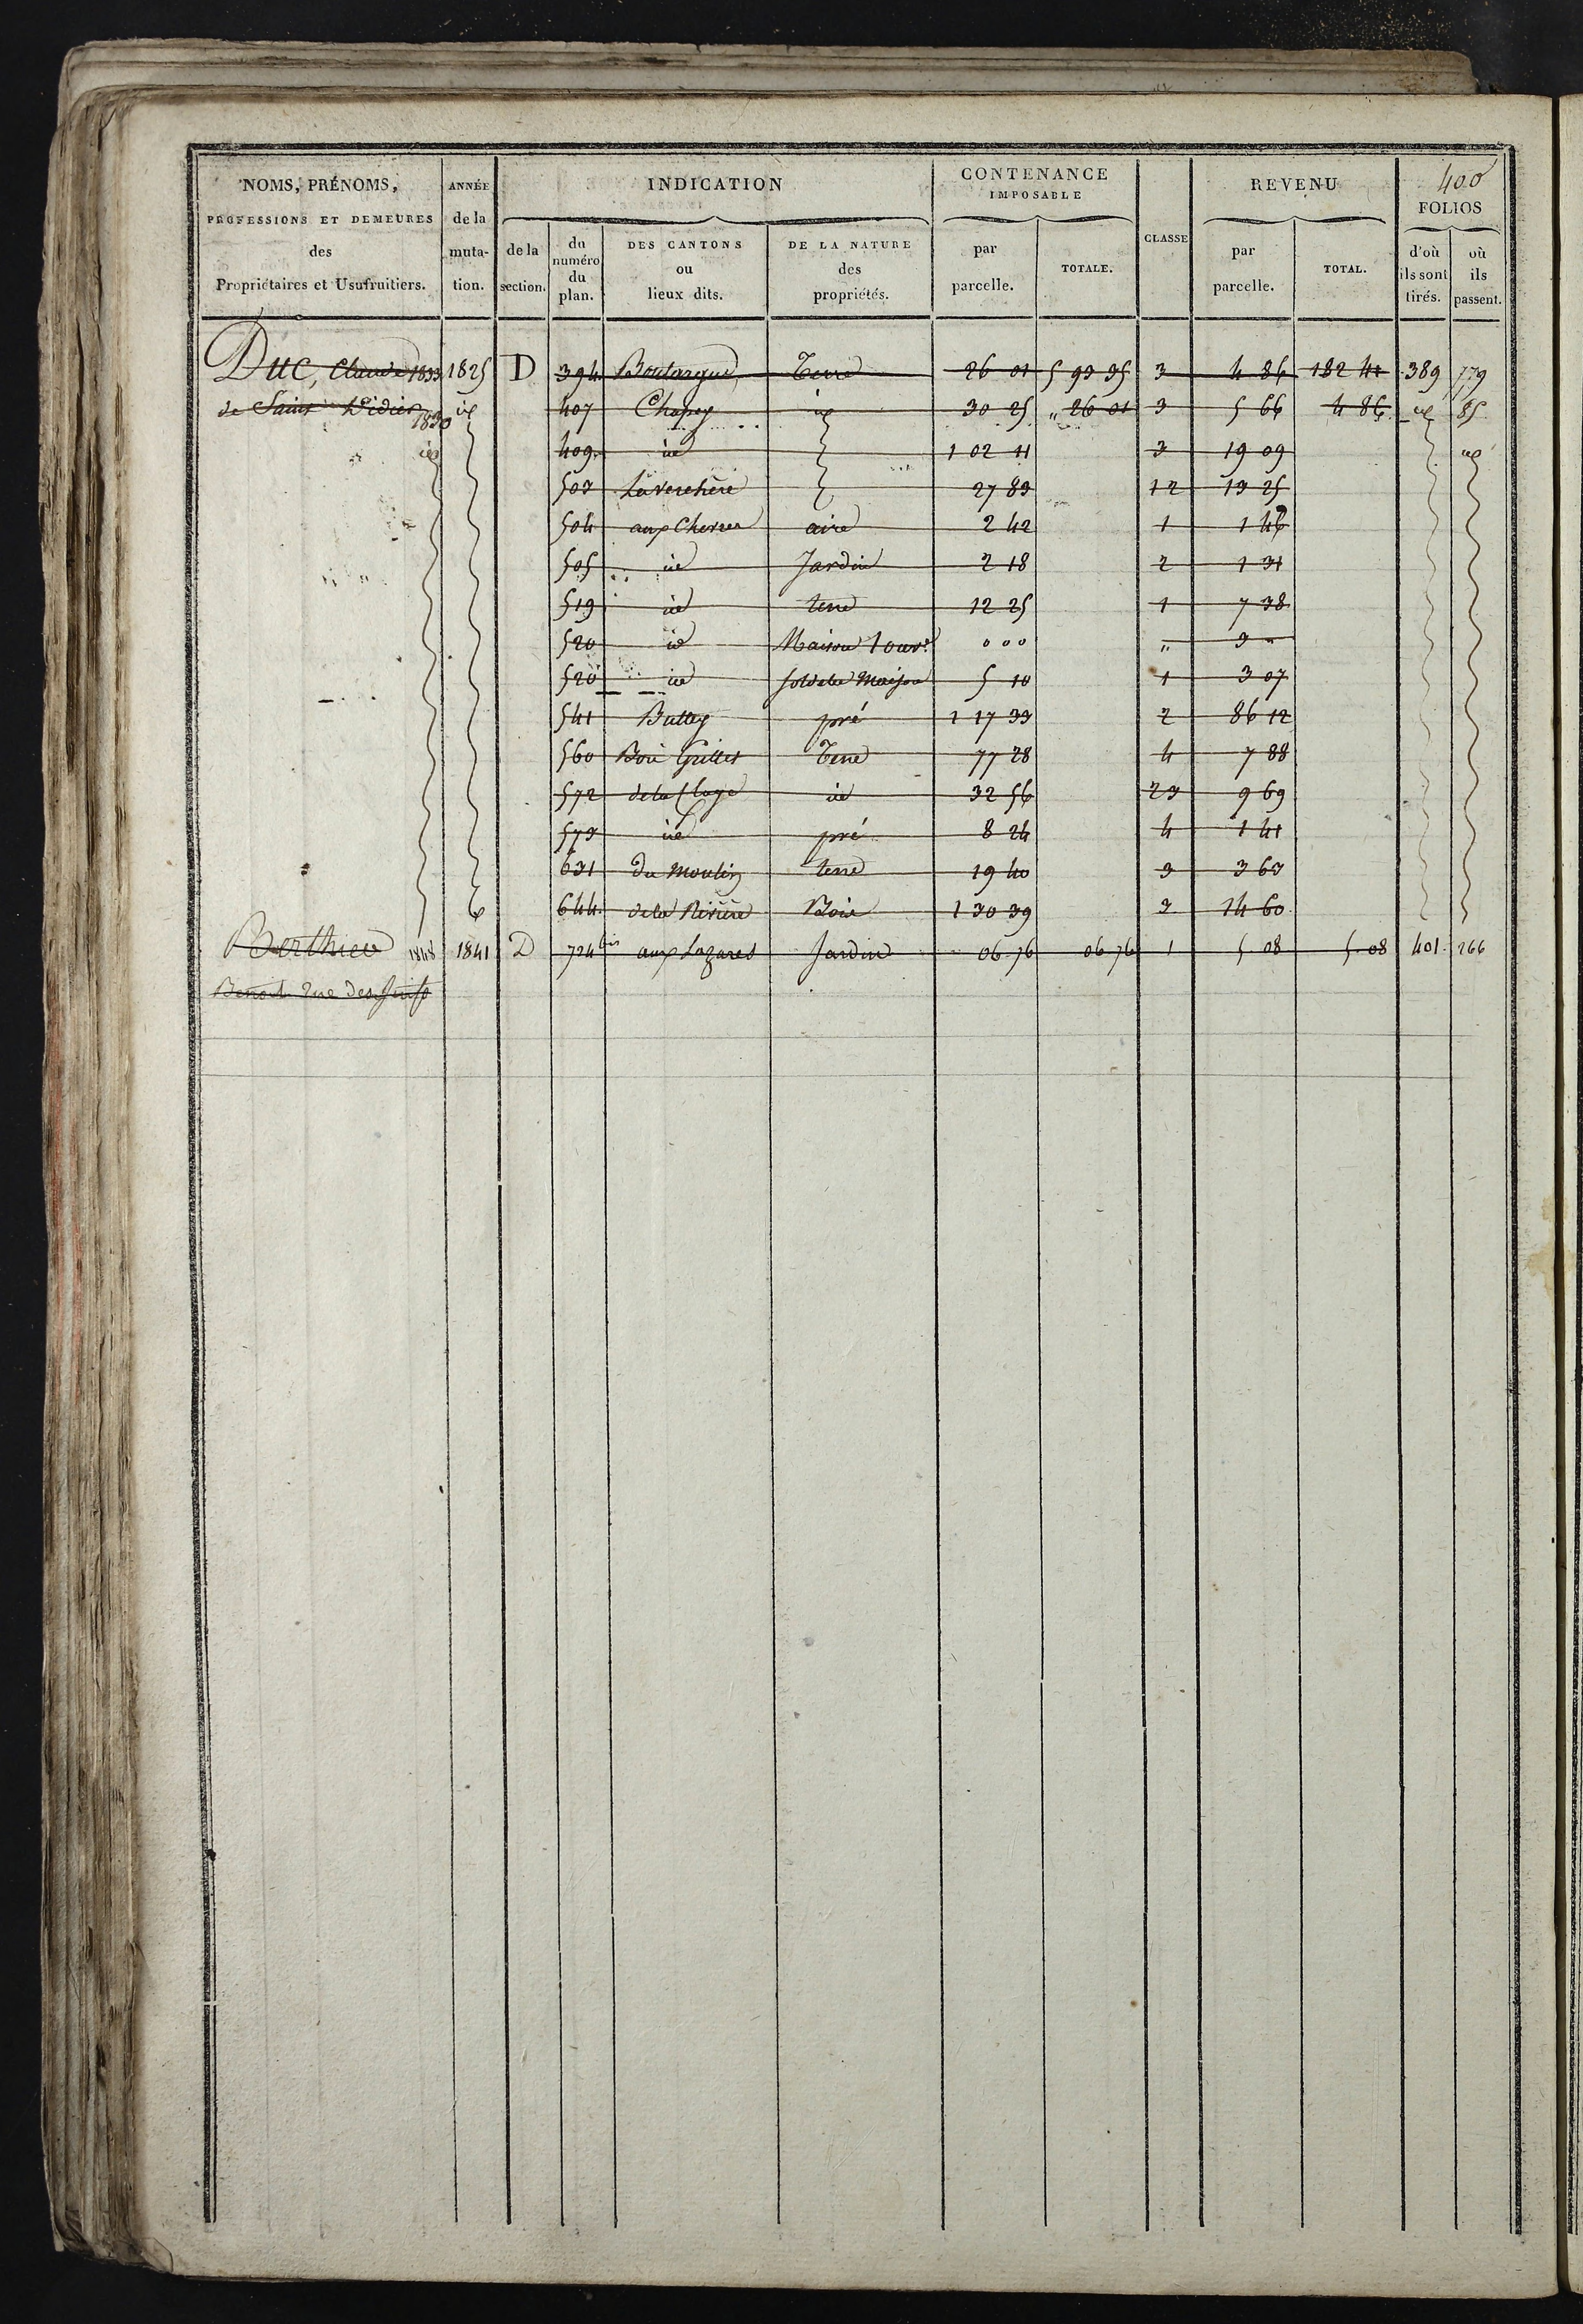 400
NOMS, PRÉNOMS, PROFESSIONS ET DEMEURES des Propriétaires et Usufruitiers. ANNÉE de la muta- tion. INDICATION de la section. du numéro du plan. DES CANTONS ou lieux dits. DE LA NATURE des propriétés. CONTENANCE IMPOSABLE par parcelle. TOTALE. CLASSE REVENU par parcelle. TOTAL. FOLIOS d'où ils sont tirés. où ils passent.
Duc, Claude 1833 1825 D 394 Boulargue Terre 26 01 5 93 35 3 4 86 182 41 389 779
de Saint Didier 1830 id 407 Chapey id 30 25 " 26 01 3 5 66 4 86 id 85
id 409 id 1 02 11 3 19 09 id
503 La Verchère 27 83 12 13 25
504 aux aire 2 42 1 1 46
505 id Jardin 2 18 2 1 31
519 id terre 12 25 1 7 38
520 id Maison 1 ouv.e 0 0 0 " 3 "
520 id sol de la Maison 5 10 1 3 07
541 Battey pré 1 17 33 2 86 12
560 Bois Grillet Terre 77 28 4 7 88
572 de la id 32 56 23 9 69
573 id pré 8 24 4 1 41
631 du Moulin terre 19 40 3 3 63
644 de la Rivière Bois 1 30 39 3 14 60
Berthieu 1848 1841 D 724 bis aux Lazares Jardin 06 76 06 76 1 5 08 5 08 401 266
Benoit rue des